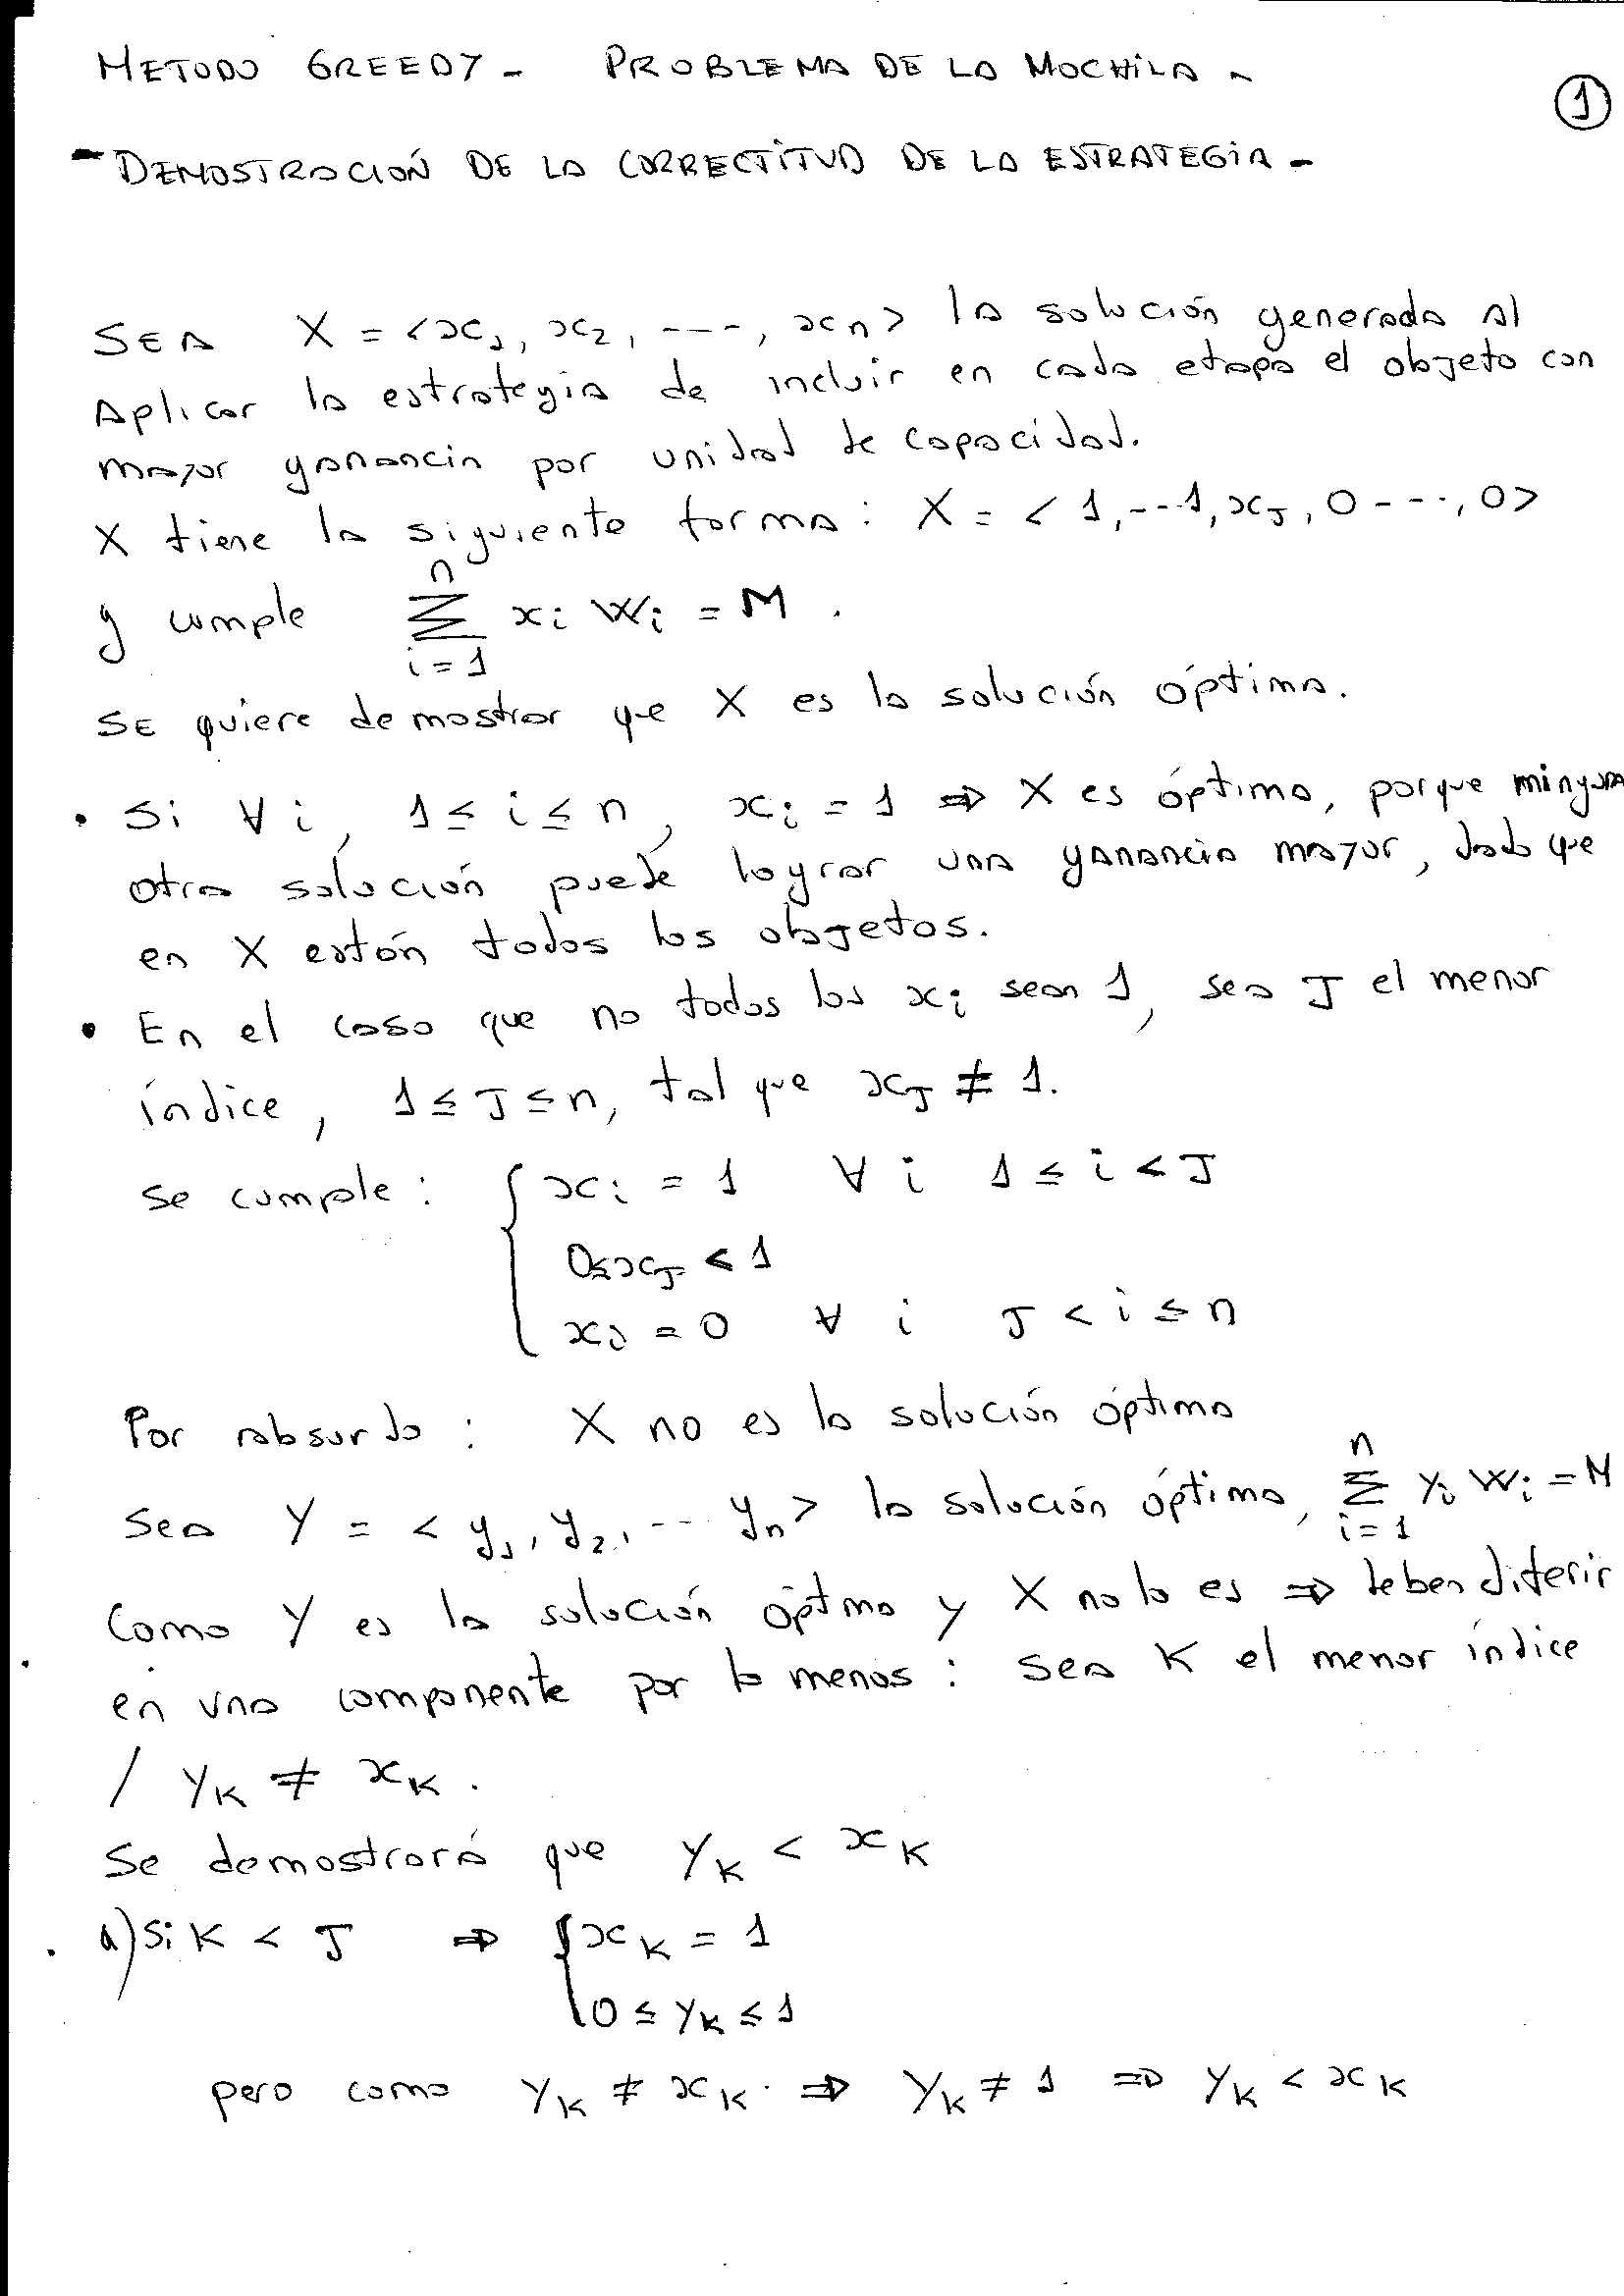 METODO GREEDY - PROBLEMA DE LA MOCHILA -
1
- DEMOSTRACIÓN DE LA CORRECTITUD DE LA ESTRATEGIA -
SEA X = <x₁, x₂, ---, xn> la solución generada al
Aplicar la estrategia de incluir en cada etapa el objeto con
mayor ganancia por unidad de capacidad.
X tiene la siguiente forma: X = < 1, --1, xJ, 0 ---, 0>
y cumple n∑i=1 xi Wi = M .
SE quiere demostrar que X es la solución óptima.
• Si ∀ i, 1 ≤ i ≤ n, xi = 1 ⇒ X es óptima, porque ninguna
otra solución puede lograr una ganancia mayor, dado que
en X están todos los objetos.
• En el caso que no todos los xi sean 1, sea J el menor
índice, 1 ≤ J ≤ n, tal que xJ ≠ 1.
se cumple: { xi = 1 ∀ i 1 ≤ i < J
0 ≤ xJ < 1
xi = 0 ∀ i J < i ≤ n
Por absurdo: X no es la solución óptima
Sea Y = < y₁, y₂, -- yn> la solución óptima, n∑i=1 yi Wi = M
Como Y es la solución óptima y X no lo es ⇒ deben diferir
en una componente por lo menos: Sea K el menor índice
/ yK ≠ xK .
Se demostrará que yK < xK
a) Si K < J ⇒ { xK = 1
0 ≤ yK ≤ 1
pero como yK ≠ xK ⇒ yK ≠ 1 ⇒ yK < xK